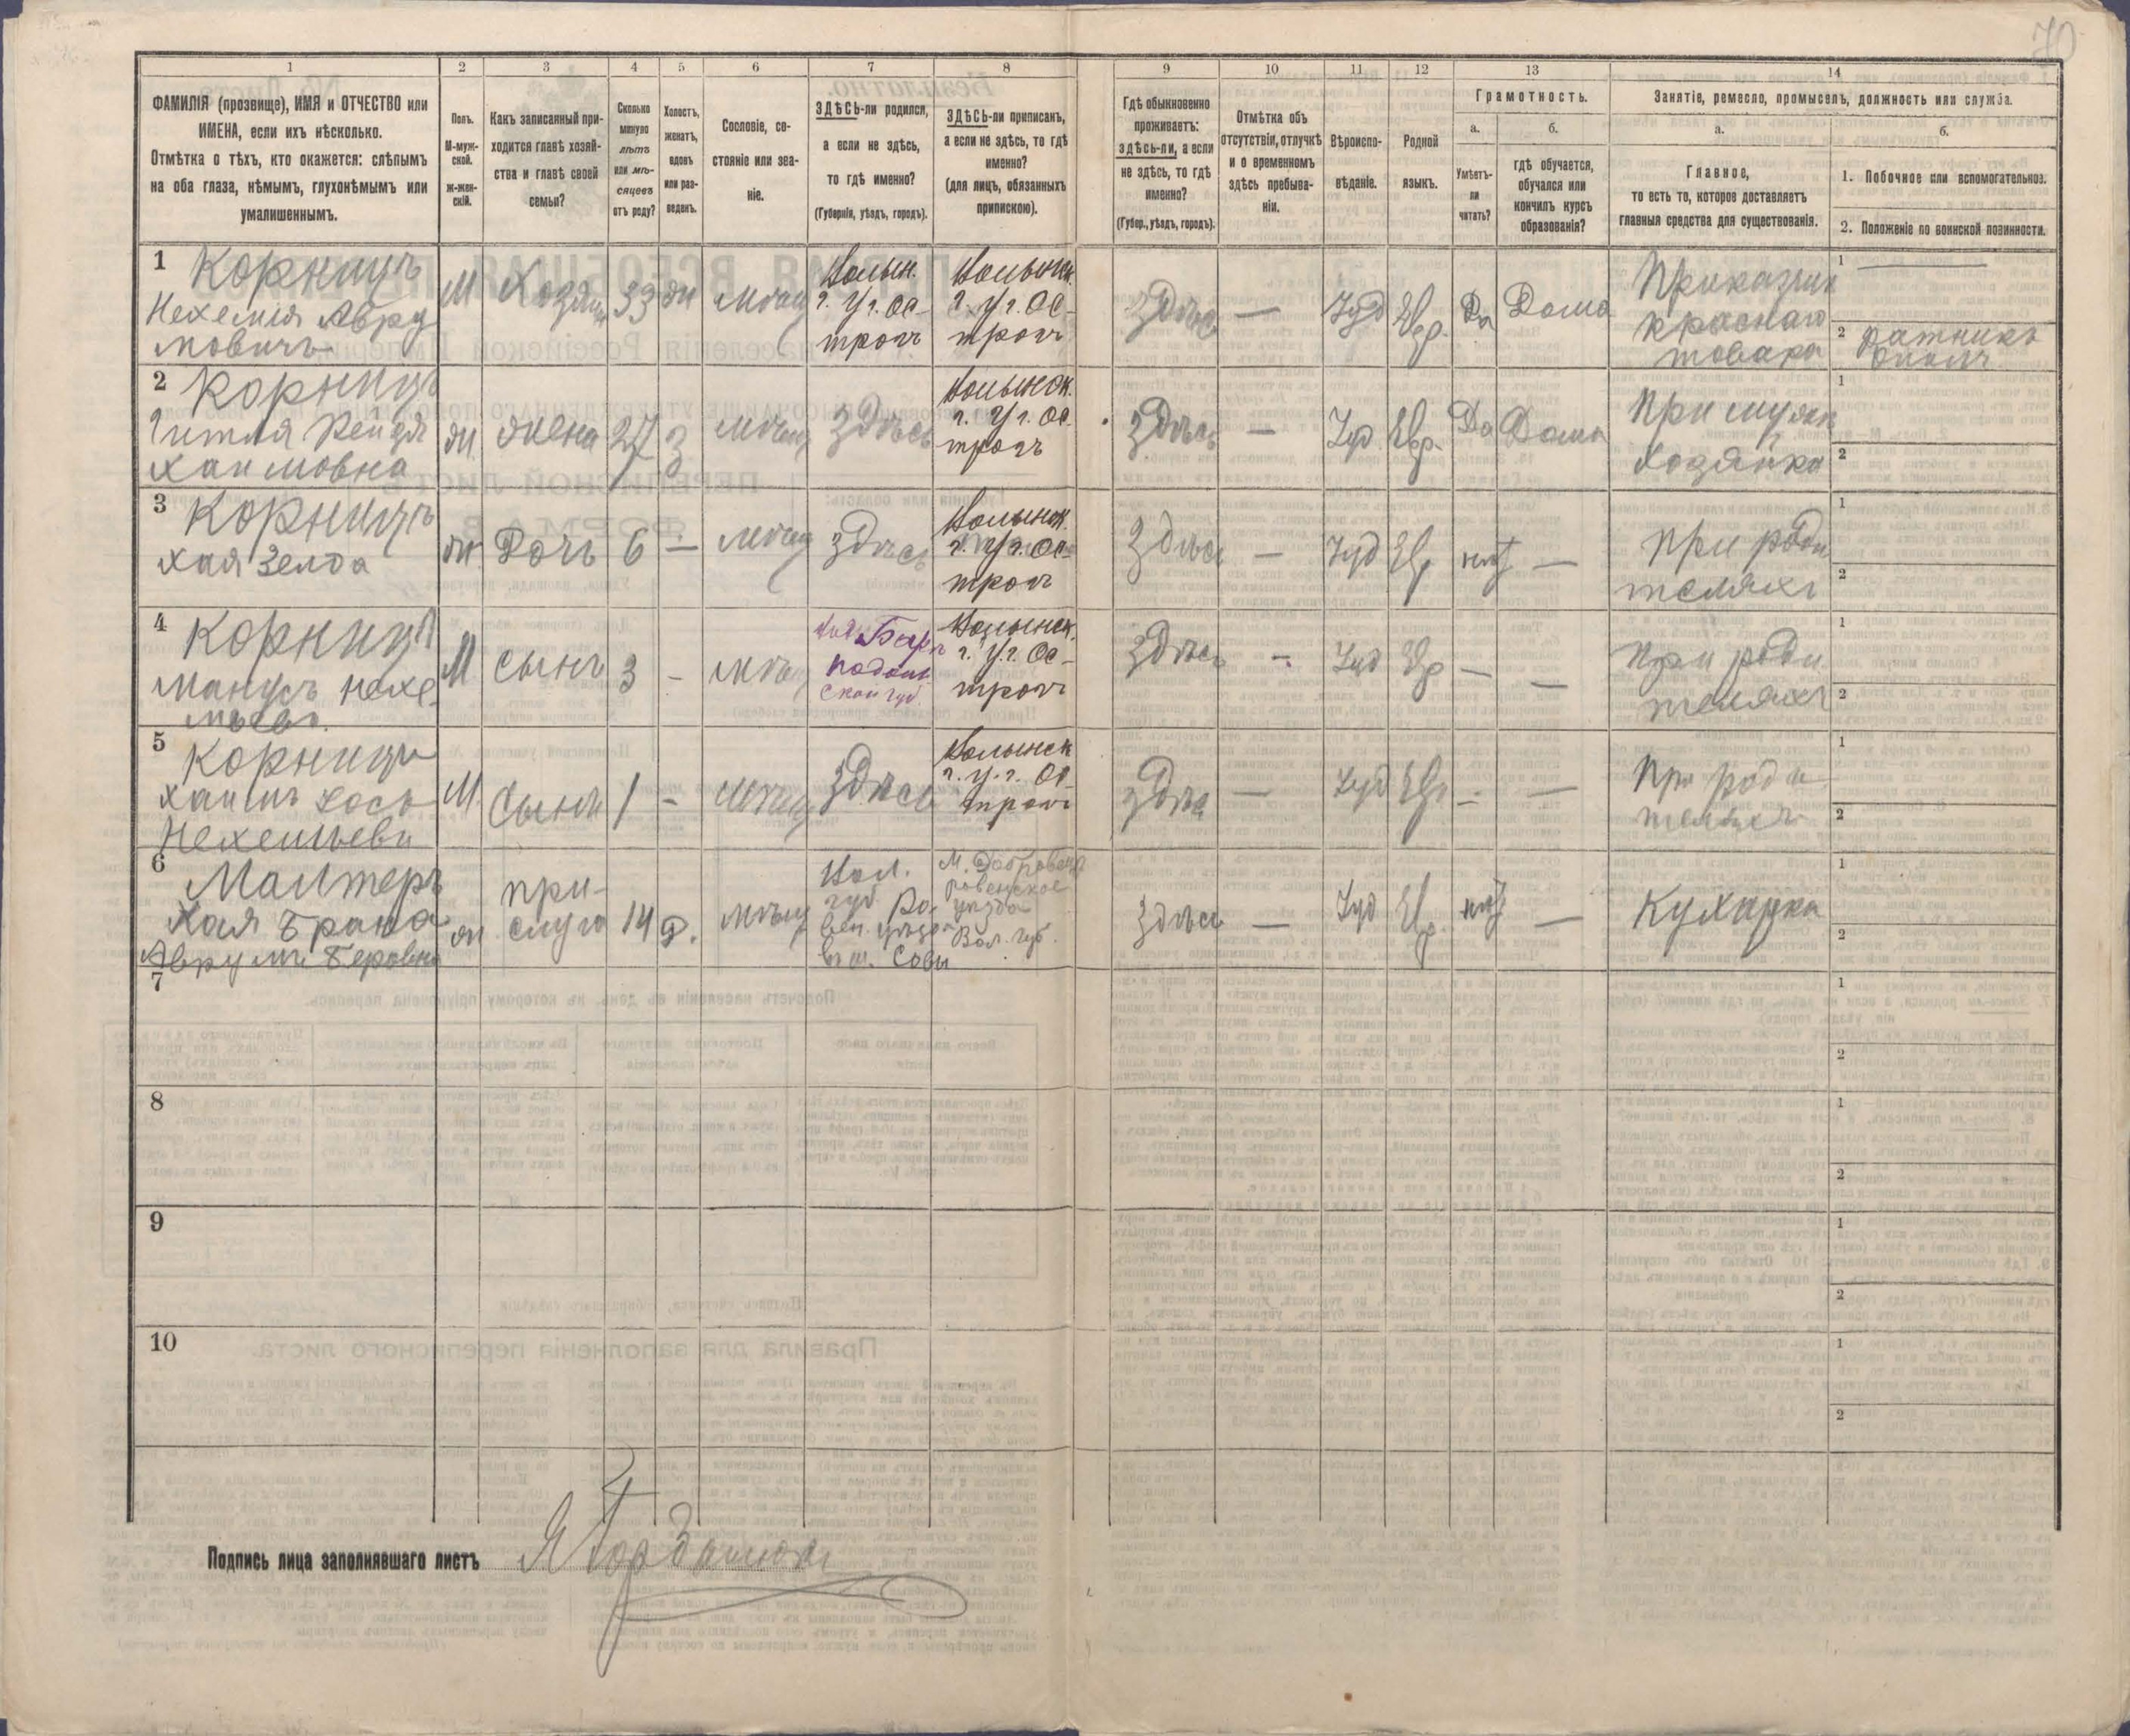 70
1 2 3 4 5 6 7 8 9 10 11 12 13 14
ФАМИЛІЯ (прозвище), ИМЯ и ОТЧЕСТВО или
ИМЕНА, если ихъ нѣсколько.
Отмѣтка о тѣхъ, кто окажется: слѣпымъ
на оба глаза, нѣмымъ, глухонѣмымъ или
умалишеннымъ.
Полъ.
М-муж-
ской.
ж-жен-
скій.
Какъ записанный при-
ходится главѣ хозяй-
ства и главѣ своей
семьи?
Сколько
минуло
лѣтъ
или мѣ-
сяцевъ
отъ роду?
Холостъ,
женатъ,
вдовъ
или раз-
веденъ.
Сословіе, со-
стояніе или зва-
ніе.
ЗДѢСЬ-ли родился,
а если не здѣсь,
то гдѣ именно?
(Губернія, уѣздъ, городъ).
ЗДѢСЬ-ли приписанъ,
а если не здѣсь, то гдѣ
именно?
(для лицъ, обязанныхъ
припискою).
Гдѣ обыкновенно
проживаетъ:
здѣсь-ли, а если
не здѣсь, то гдѣ
именно?
(Губер., уѣздъ, городъ).
Отмѣтка объ
отсутствіи, отлучкѣ
и о временномъ
здѣсь пребыва-
ніи.
Вѣроиспо-
вѣданіе.
Родной
языкъ.
Грамотность.
а.
Умѣетъ-
ли
читать?
б.
гдѣ обучается,
обучался или
кончилъ курсъ
образованія?
Занятіе, ремесло, промыселъ, должность или служба.
а.
Главное,
то есть то, которое доставляетъ
главныя средства для существованія.
б.
1. Побочное или вспомогательное.
2. Положеніе по воинской повинности.
1 Корницъ
Нехемія Авру
мовичъ
М Хозяинъ 33 ж мѣщ
Волын.
г. У г. Ос-
трогъ
Волынск.
г. У г. Ос-
трогъ
Здѣсь — Іуд Евр. Да Дома
Приказчик
краснаго
товара
1 —
2 Ратникъ
ополч.
2 Корницъ
Гитля Рейзя
Хаимовна
ж. жена 27 з мѣщ Здѣсь
Волынск.
г. У г. Ос.
трогъ
Здѣсь — Іуд Евр. Да Дома
При мужѣ
хозяйка
1
2
3 Корницъ
Хая Зелда
ж. Дочь 6 — мѣщ Здѣсь
Волынск.
г. У г. Ос-
трогъ
Здѣсь — Іуд Евр нѣт —
При роди
теляхъ
1
2
4 Корницъ
Манусъ Нехе-
мьевъ.
М сынъ 3 - мѣщ
Баръ
подоль
ской губ.
Волынск.
г. У. г. Ос-
трогъ
Здѣсь - Іуд Евр — —
При роди
теляхъ
1
2
5 Корницъ
Хаимъ Іось
Нехемьевъ
М. Сынъ 1 - мѣщ Здѣсь
Волынск
г. У. г. Ос-
трогъ
Здѣсь — Іуд Евр - —
При роди
теляхъ
1
2
6
Хая Брана
Аврумъ Беровна
ж при-
слуга 14 д. мѣщ
Вол.
губ. Ро-
вен. уѣзд
ровенское
уѣзда
Вол. губ.
здѣсь — Іуд Евр. нѣт — Кухарка
1
2
7
1
2
8
1
2
9
1
2
10
1
2
Подпись лица заполнявшаго листъ